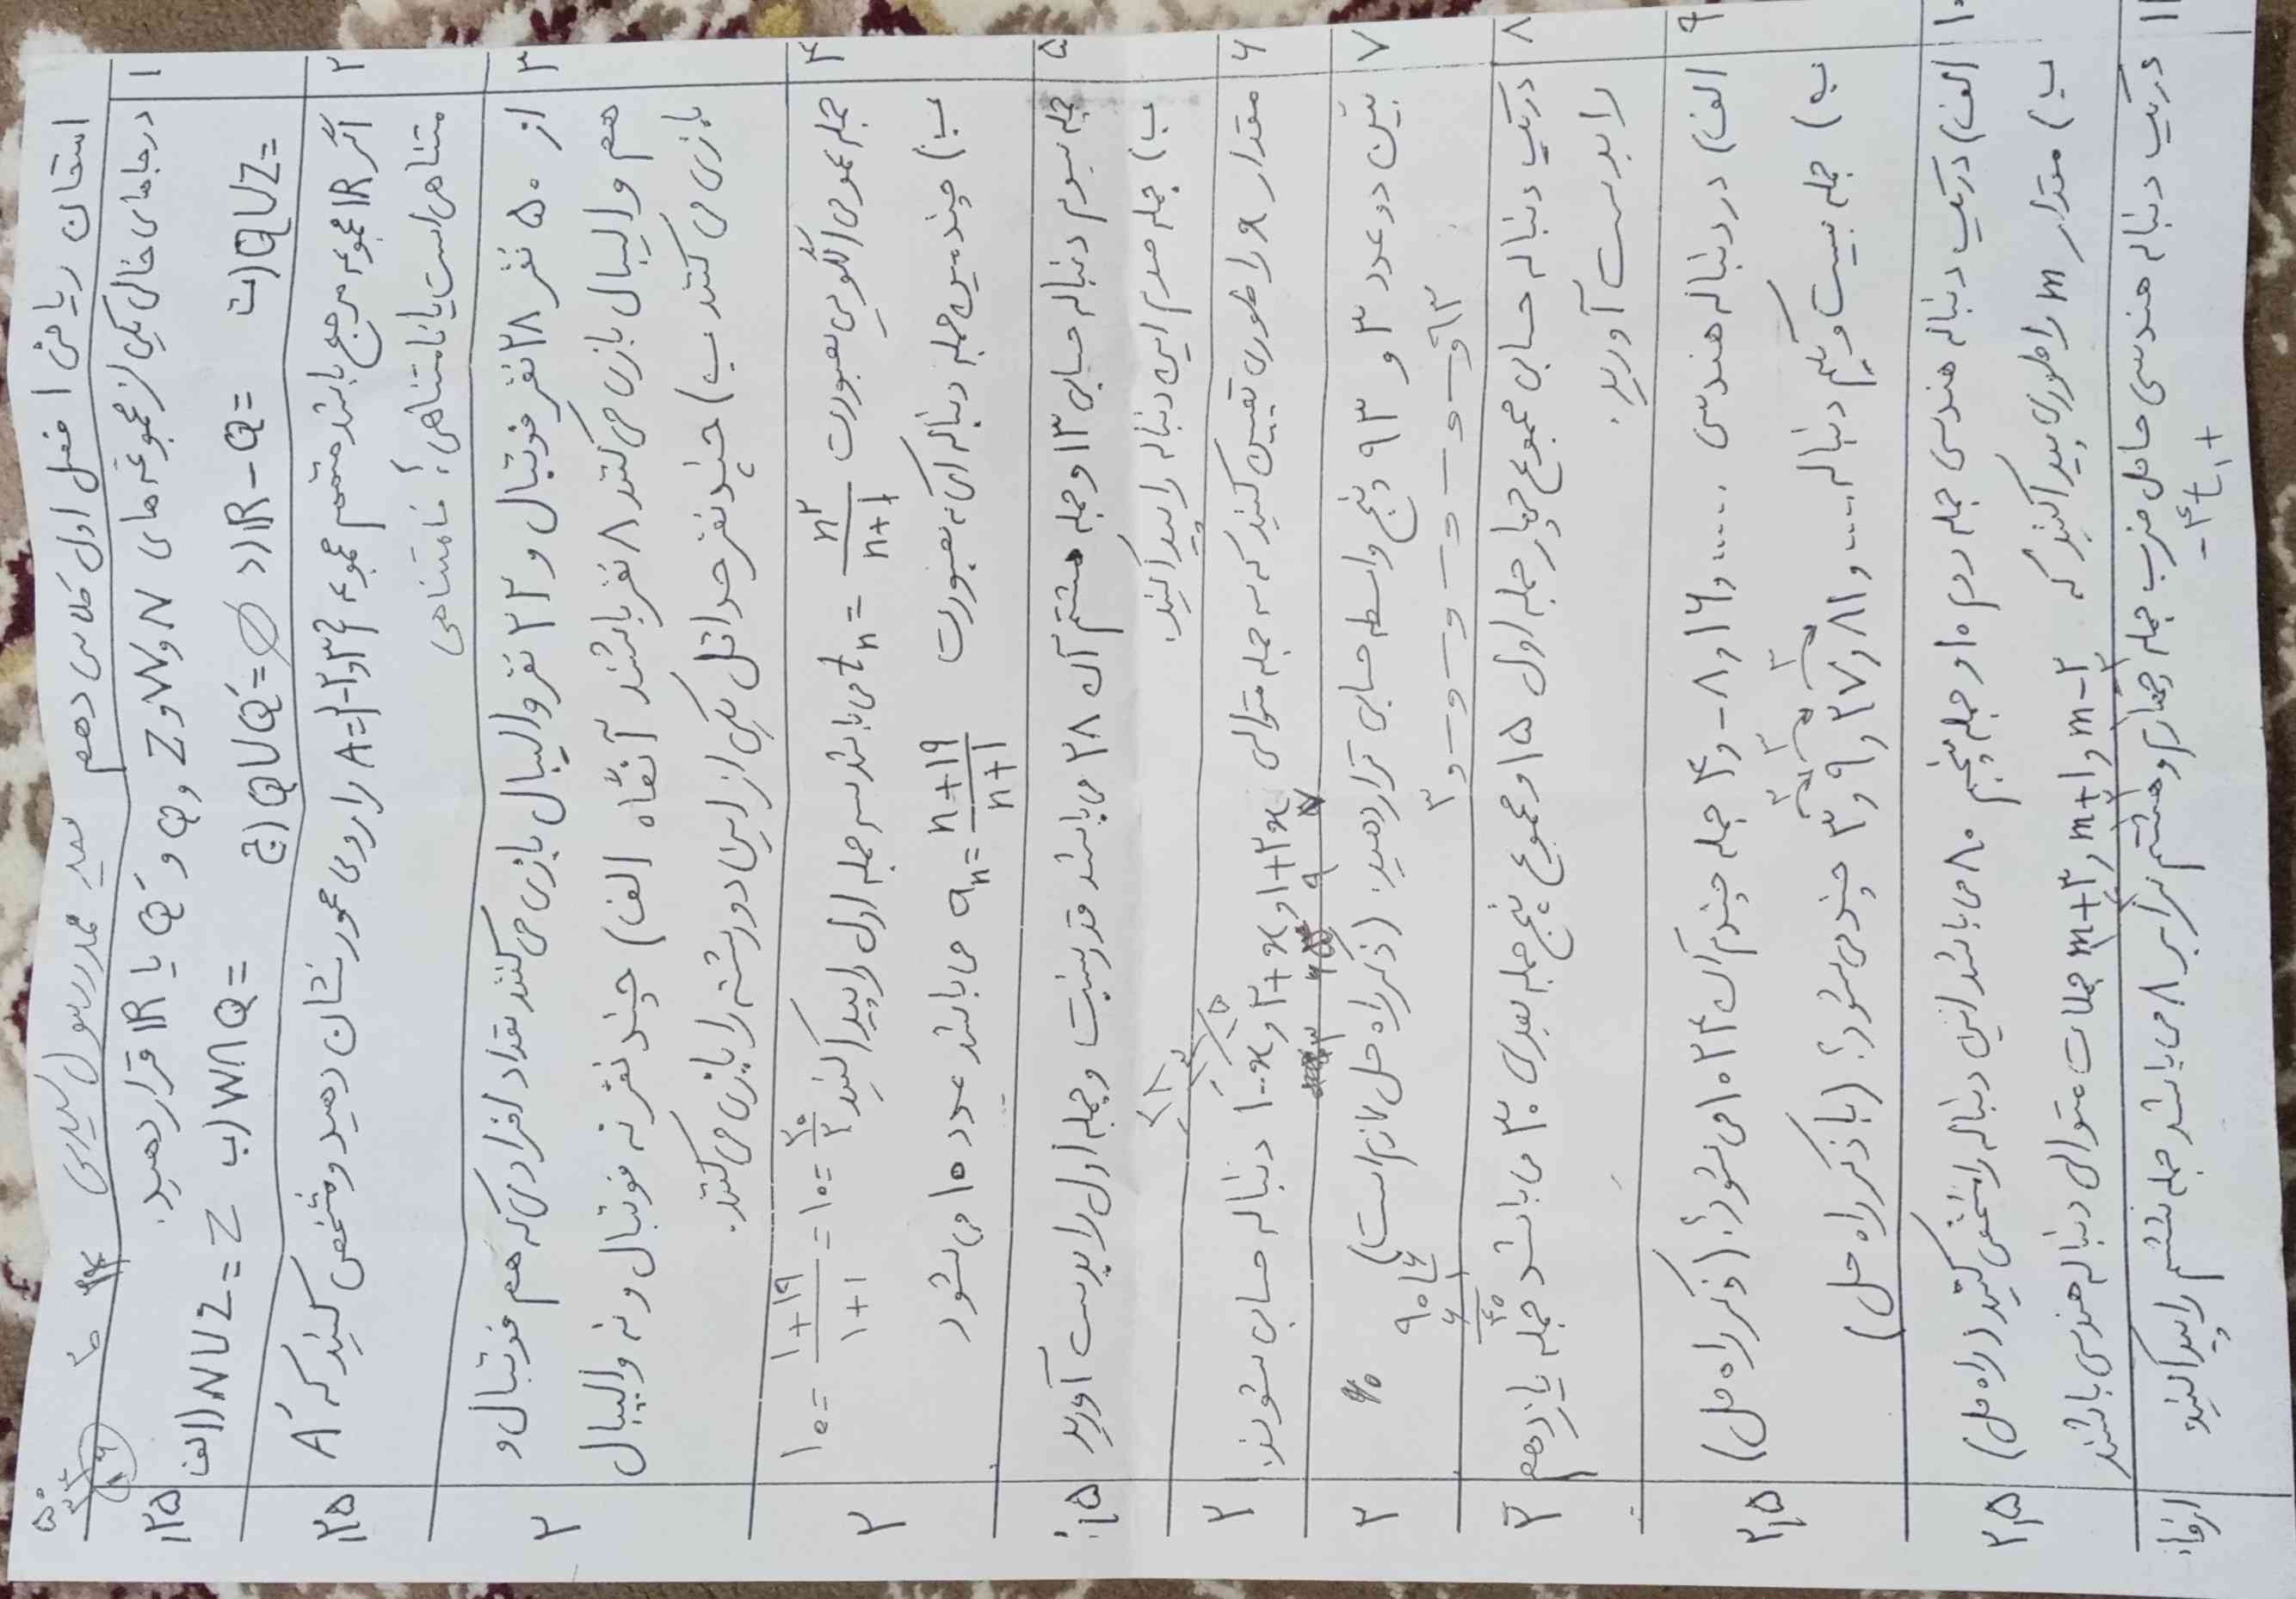 امتحان ریاضی ۱ فصل اول کلاس دهم سعید محمدرسول
۱ درجاهای خالی یکی از مجموعه های N و W و Z و Q و Q′ یا IR قرار دهید. ۱,۲۵
الف) N∪Z = Z ب) W∩Q = ج) Q∪Q′ = ∅ د) IR − Q = ت) Q∪Z =
۲ اگر IR مجموعه مرجع باشد متمم مجموعه A={-۲و۳} را روی محور نشان دهید و مشخص کنید که A′ ۱,۲۵
متناهی است یا نامتناهی؟ نامتناهی
۳ از ۵۰ نفر ۲۸ نفر فوتبال و ۲۲ نفر والیبال بازی می کنند تعداد افرادی که هم فوتبال و ۲
هم والیبال بازی می کنند ۸ نفر باشند آنگاه الف) چند نفر نه فوتبال و نه والیبال
بازی می کنند ب) چند نفر حداقل یکی از این دو رشته را بازی می کنند.
۴ جمله عمومی الگویی بصورت tₙ = n²/(n+1) می باشد سه جمله اول را پیدا کنید ۲
۱۰ = (۱+۱۹)/(۱+۱) = ۱۰ = ۲۰/۲
ب) چندمین جمله دنباله ای که بصورت aₙ = (n+۱۹)/(n+۱) می باشد عدد ۱۰ می شود
۵ جمله سوم دنباله حسابی ۱۳ و جمله هشتم آن ۲۸ می باشد قدرنسبت و جمله اول را بدست آورید ۱,۵
ب) جمله صدم این دنباله را پیدا کنید.
۶ مقدار x را طوری تعیین کنید که سه جمله متوالی ۱+۲x و ۲+x و ۱۰-x دنباله حسابی شوند. ۲
۷ بین دو عدد ۳ و ۹۳ پنج واسطه حسابی قرار دهید. (ذکر راه حل لازم است) ۲
۳ و - و - و - و - و - و ۹۳
۸ دریک دنباله حسابی مجموع چهار جمله اول ۱۵ و مجموع پنج جمله بعدی ۳۰ می باشد جمله یازدهم ۲
را بدست آورید.
۹ الف) در دنباله هندسی ..... و ۱۶ و ۸- و ۴ جمله چندم آن ۱۰۲۴ می شود؟ (ذکر راه حل) ۲,۵
ب) جمله بیست و یکم دنباله .... و ۸۱ و ۲۷ و ۹ و ۳ چند می شود؟ (باذکر راه حل)
۱۰ الف) دریک دنباله هندسی جمله دوم ۱۰ و جمله پنجم ۸۰ می باشد این دنباله را مشخص کنید (راه حل) ۲,۵
ب) مقدار m را طوری پیدا کنید که m-۲ و m+۱ و m+۳ جملات متوالی دنباله هندسی باشند
۱۱ دریک دنباله هندسی حاصل ضرب جمله چهارم و هشتم برابر ۸ می باشد جمله ششم را پیدا کنید